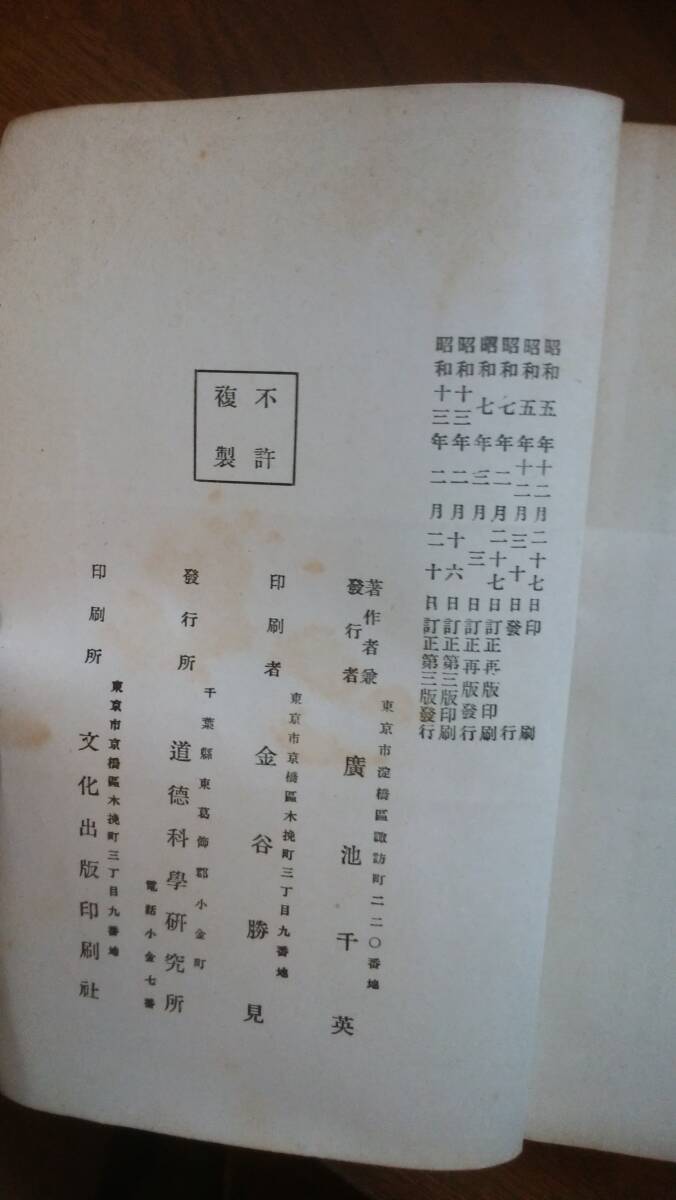 昭和五年十二月二十七日印刷
昭和五年十二月三十日發行
昭和七年二月二十七日訂正再版印刷
昭和七年三月三日訂正再版發行
昭和十三年二月十六日訂正第三版印刷
昭和十三年二月二十日訂正第三版發行
不許
複製
東京市淀橋區諏訪町二二〇番地
著作者兼
發行者
廣池千英
東京市京橋區木挽町三丁目九番地
印刷者
金谷勝見
千葉縣東葛飾郡小金町
發行所
道德科學研究所
電話小金七番
東京市京橋區木挽町三丁目九番地
印刷所
文化出版印刷社